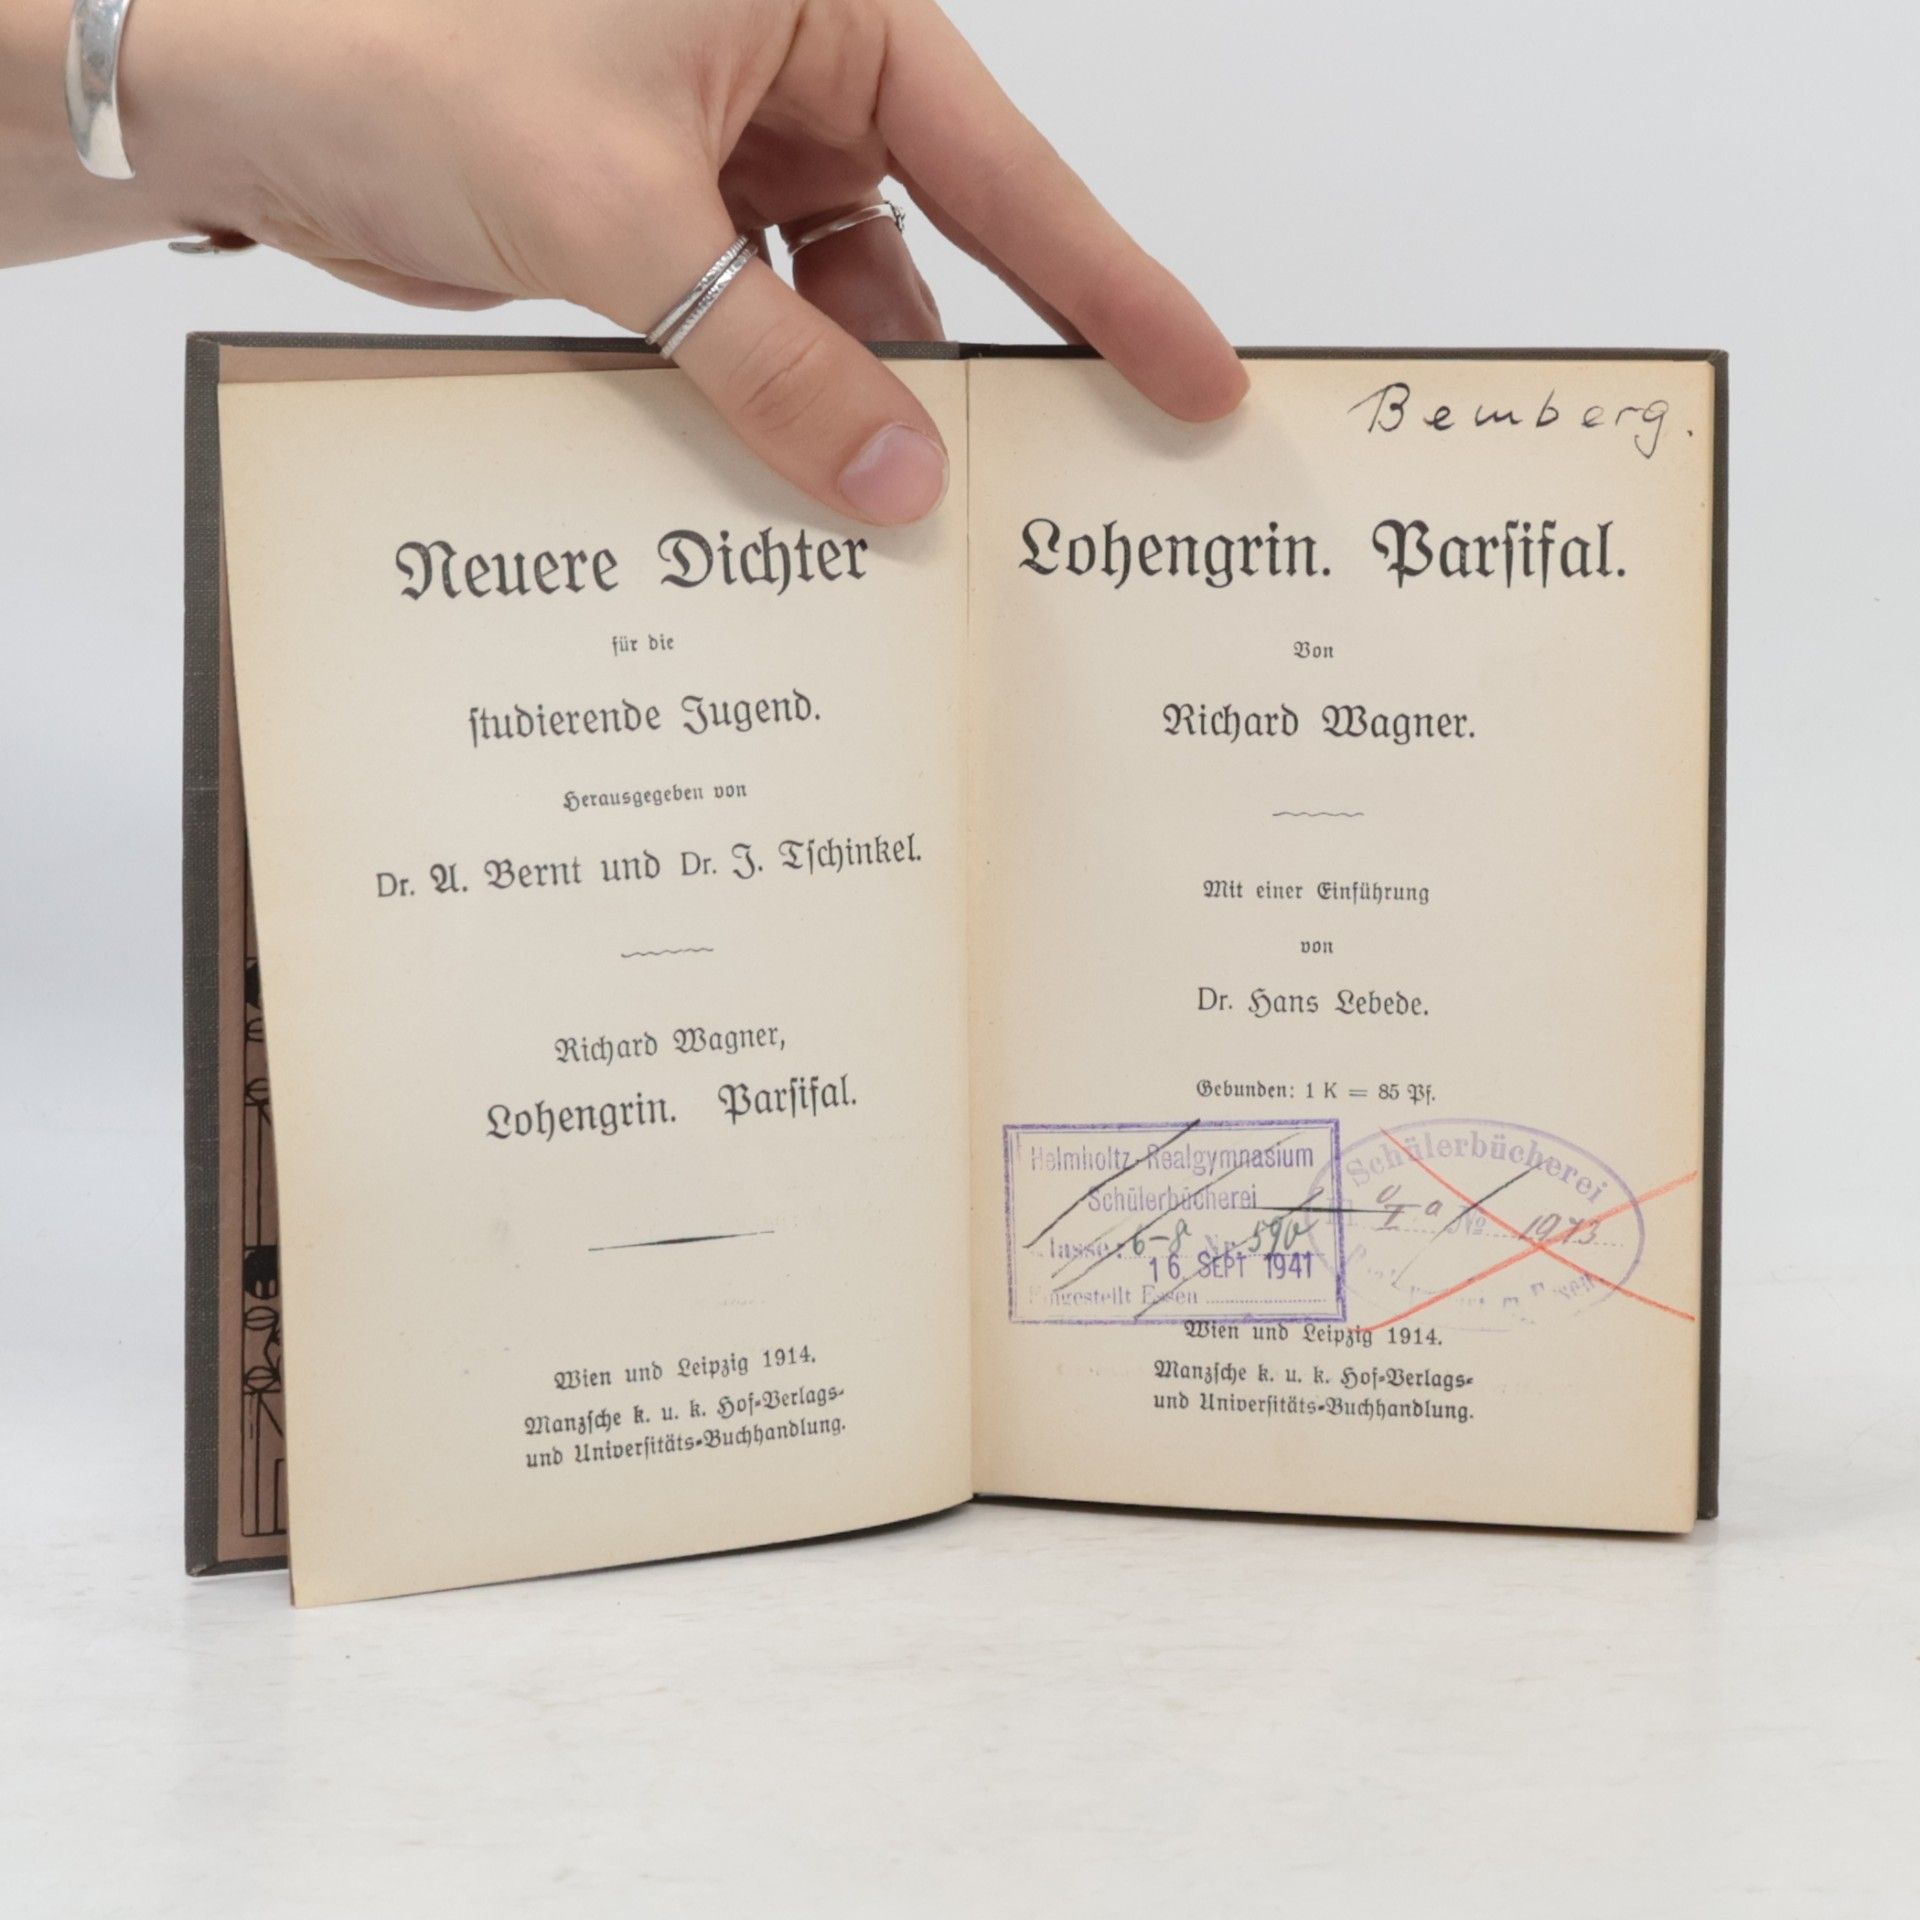 Neuere Dichter
für die
ſtudierende Jugend.
Herausgegeben von
Dr. A. Bernt und Dr. J. Tſchinkel.
Richard Wagner,
Lohengrin. Parſifal.
Wien und Leipzig 1914.
Manzſche k. u. k. Hof-Verlags-
und Univerſitäts-Buchhandlung.
Bemberg.
Lohengrin. Parſifal.
Von
Richard Wagner.
Mit einer Einführung
von
Dr. Hans Lebede.
Gebunden: 1 K = 85 Pf.
Helmholtz-Realgymnasium
Schülerbücherei
Klasse: 6-8 Nr. 590
16. SEPT 1941
Eingestellt Essen
Schülerbücherei
a No 1973
Essen
Wien und Leipzig 1914.
Manzſche k. u. k. Hof-Verlags-
und Univerſitäts-Buchhandlung.